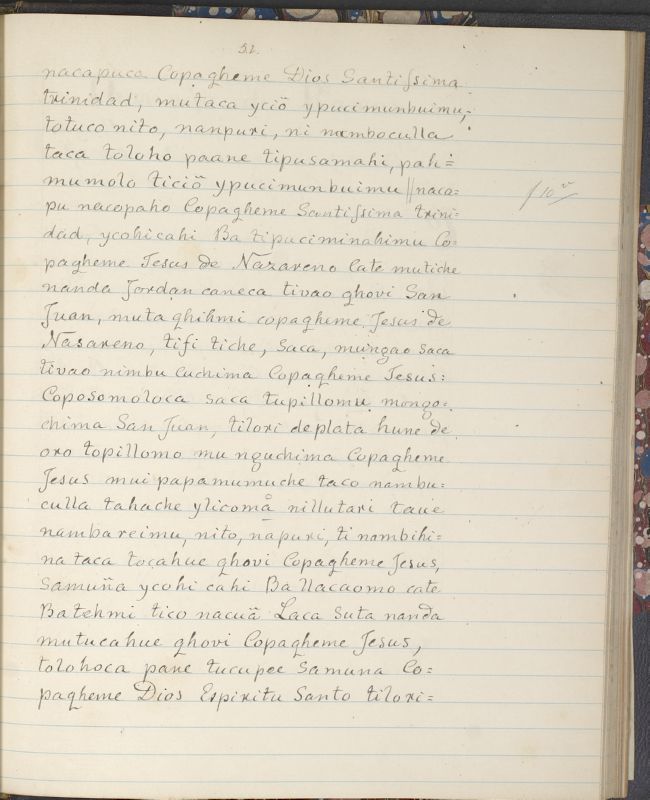 52.
nacapuca Copagheme Dios Santiſsima
trinidad, mutaca ycio͞ ypucimunbuimu,
totuco nito, nanpuri, ni namboculla
taca toloho paane tipusamahi, pah=
mumolo ticio͞ ypucimunbuimu || naca=
pu nacopaho Copagheme Santiſsima trini=
dad, ycohicahi Ba tipuciminahimu Co=
pagheme Jesus de Nazareno Cate mutiche
nanda Jordan caneca tivao ghovi San
Juan, muta ghihmi copagheme Jesus de
Nasareno, tifi tiche, saca, mungao saca
tivao nimbu cuchima Copagheme Jesus:
Coposomoloca saca tupillomu mongo=
chima San Juan, tilori de plata hune de
oro topillomo mu nguchima Copagheme
Jesus mui papamumuche taco nambu=
culla tahache ylicomå nillutari taue
nambareimu, nito, napuri, ti nambihi=
na taca tocahue ghovi Copagheme Jesus,
Samuña ycohi cahi Ba llacaomo cate
Batehmi tico nacuã Laca suta nanda
mutucahue ghovi Copagheme Jesus,
tolohoca pane tucupee Samuna Co=
pagheme Dios Espiritu Santo tilori=